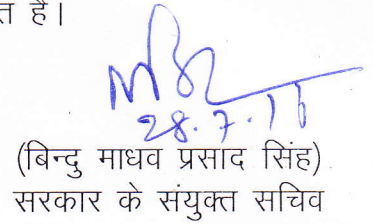 त है।
28.7.16
(बिन्दु माधव प्रसाद सिंह)
सरकार के संयुक्त सचिव